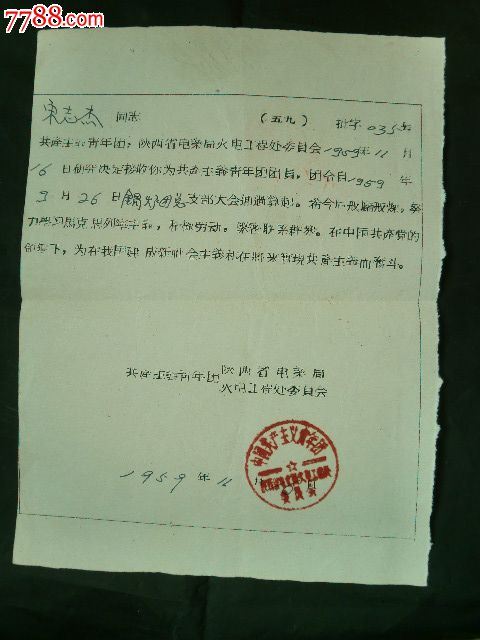 7788.com
中国收藏热线
宋志杰 同志 (五九) 批字035号
共产主义青年团：陕西省电业局火电工程处委员会1959年11月
16日研究决定接收你为共产主义青年团团员，团令自1959年
9月26日支部大会通过算起。希今后
力学习马克思列宁主义，积极劳动。紧密联系群众。在中国共产党的
领导下，为在我国建成社会主义和在将来实现共产主义而奋斗。
共产主义青年团陕西省电业局
火电工程处委员会
1959年11月
中国共产主义青年团
委员会